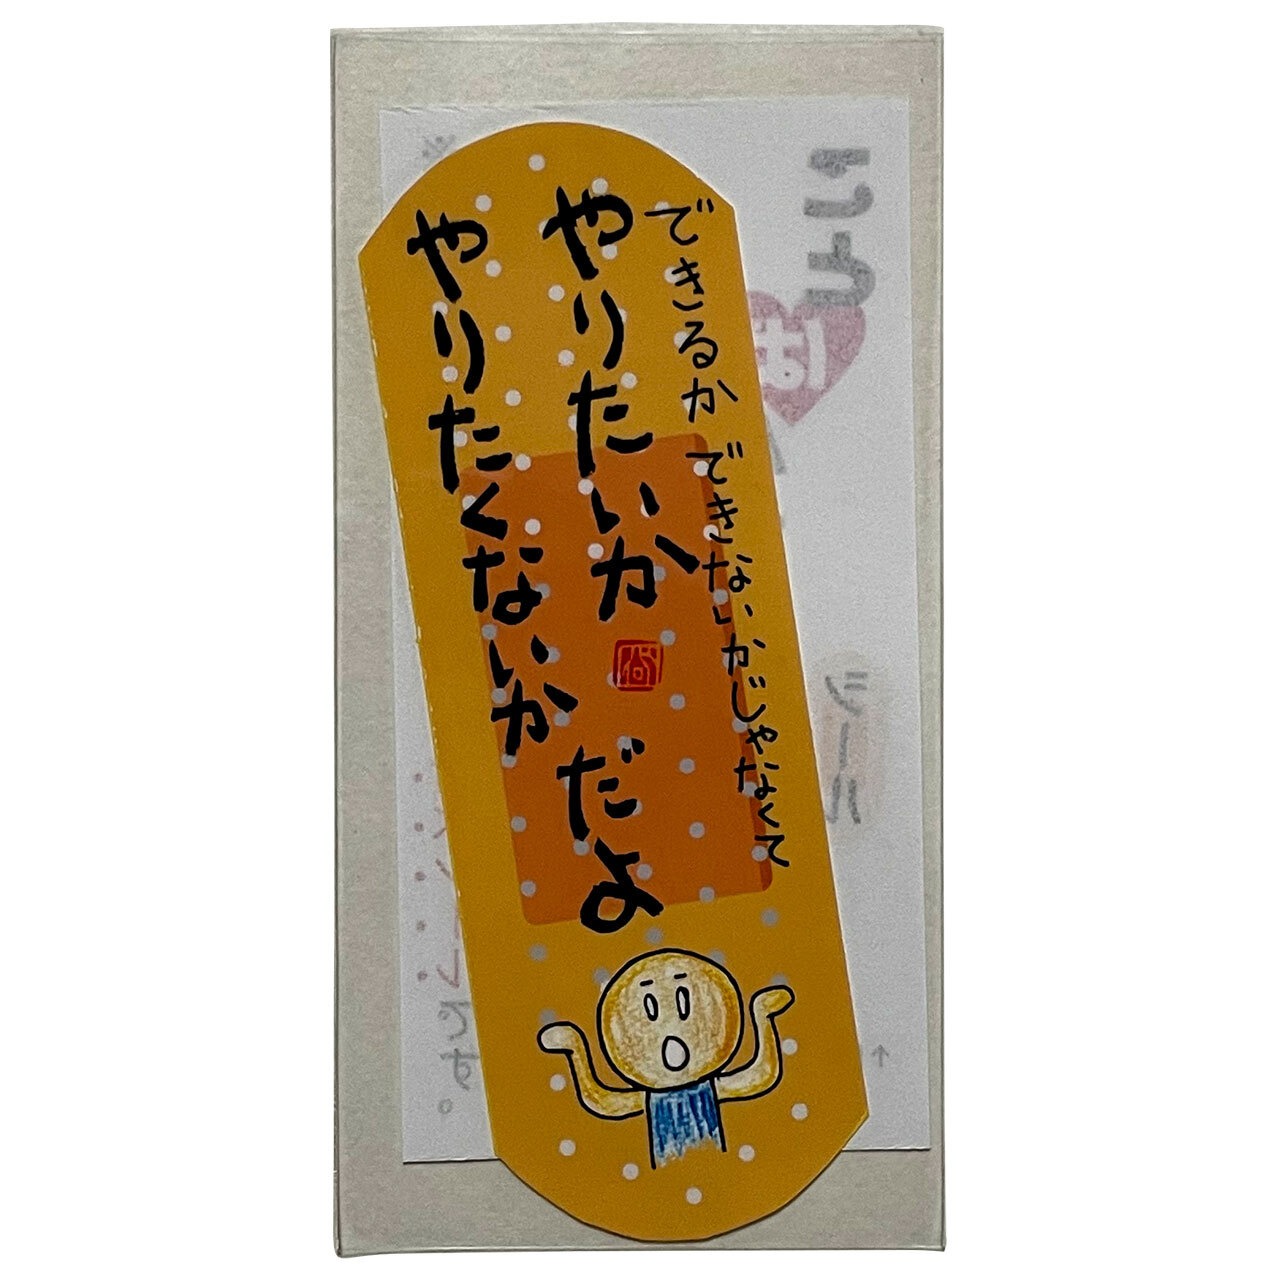 できるか できないかじゃなくて
やりたいか だよ
やりたくないか
シール
です。